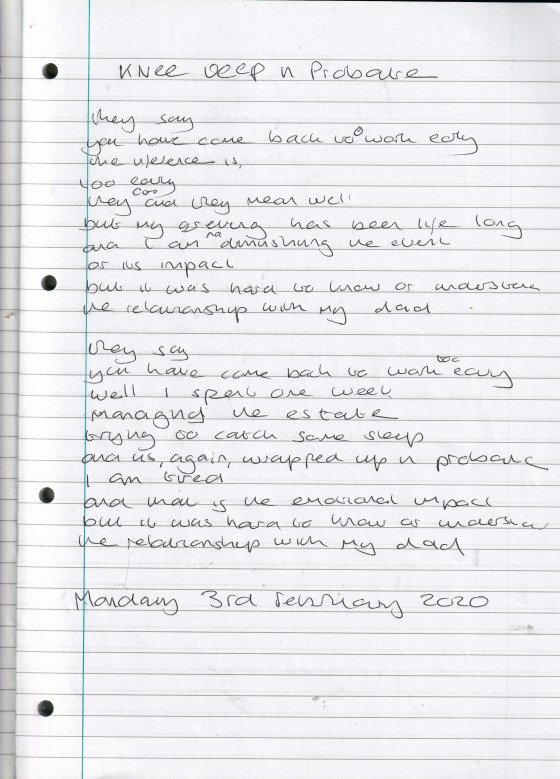 Knee Deep in Probate
they say
you have come back to work early
the inference is,
too early
they coo and they mean well
but my grieving has been life long
and I am not diminishing the event
or its impact
but it was hard to know or understand
the relationship with my dad
they say
you have come back to work too early
well I spent one week
managing the estate
trying to catch some sleep
and us, again, wrapped up in probate
I am tired
and that is the emotional impact
but it was hard to know or understand
the relationship with my dad
Monday 3rd February 2020